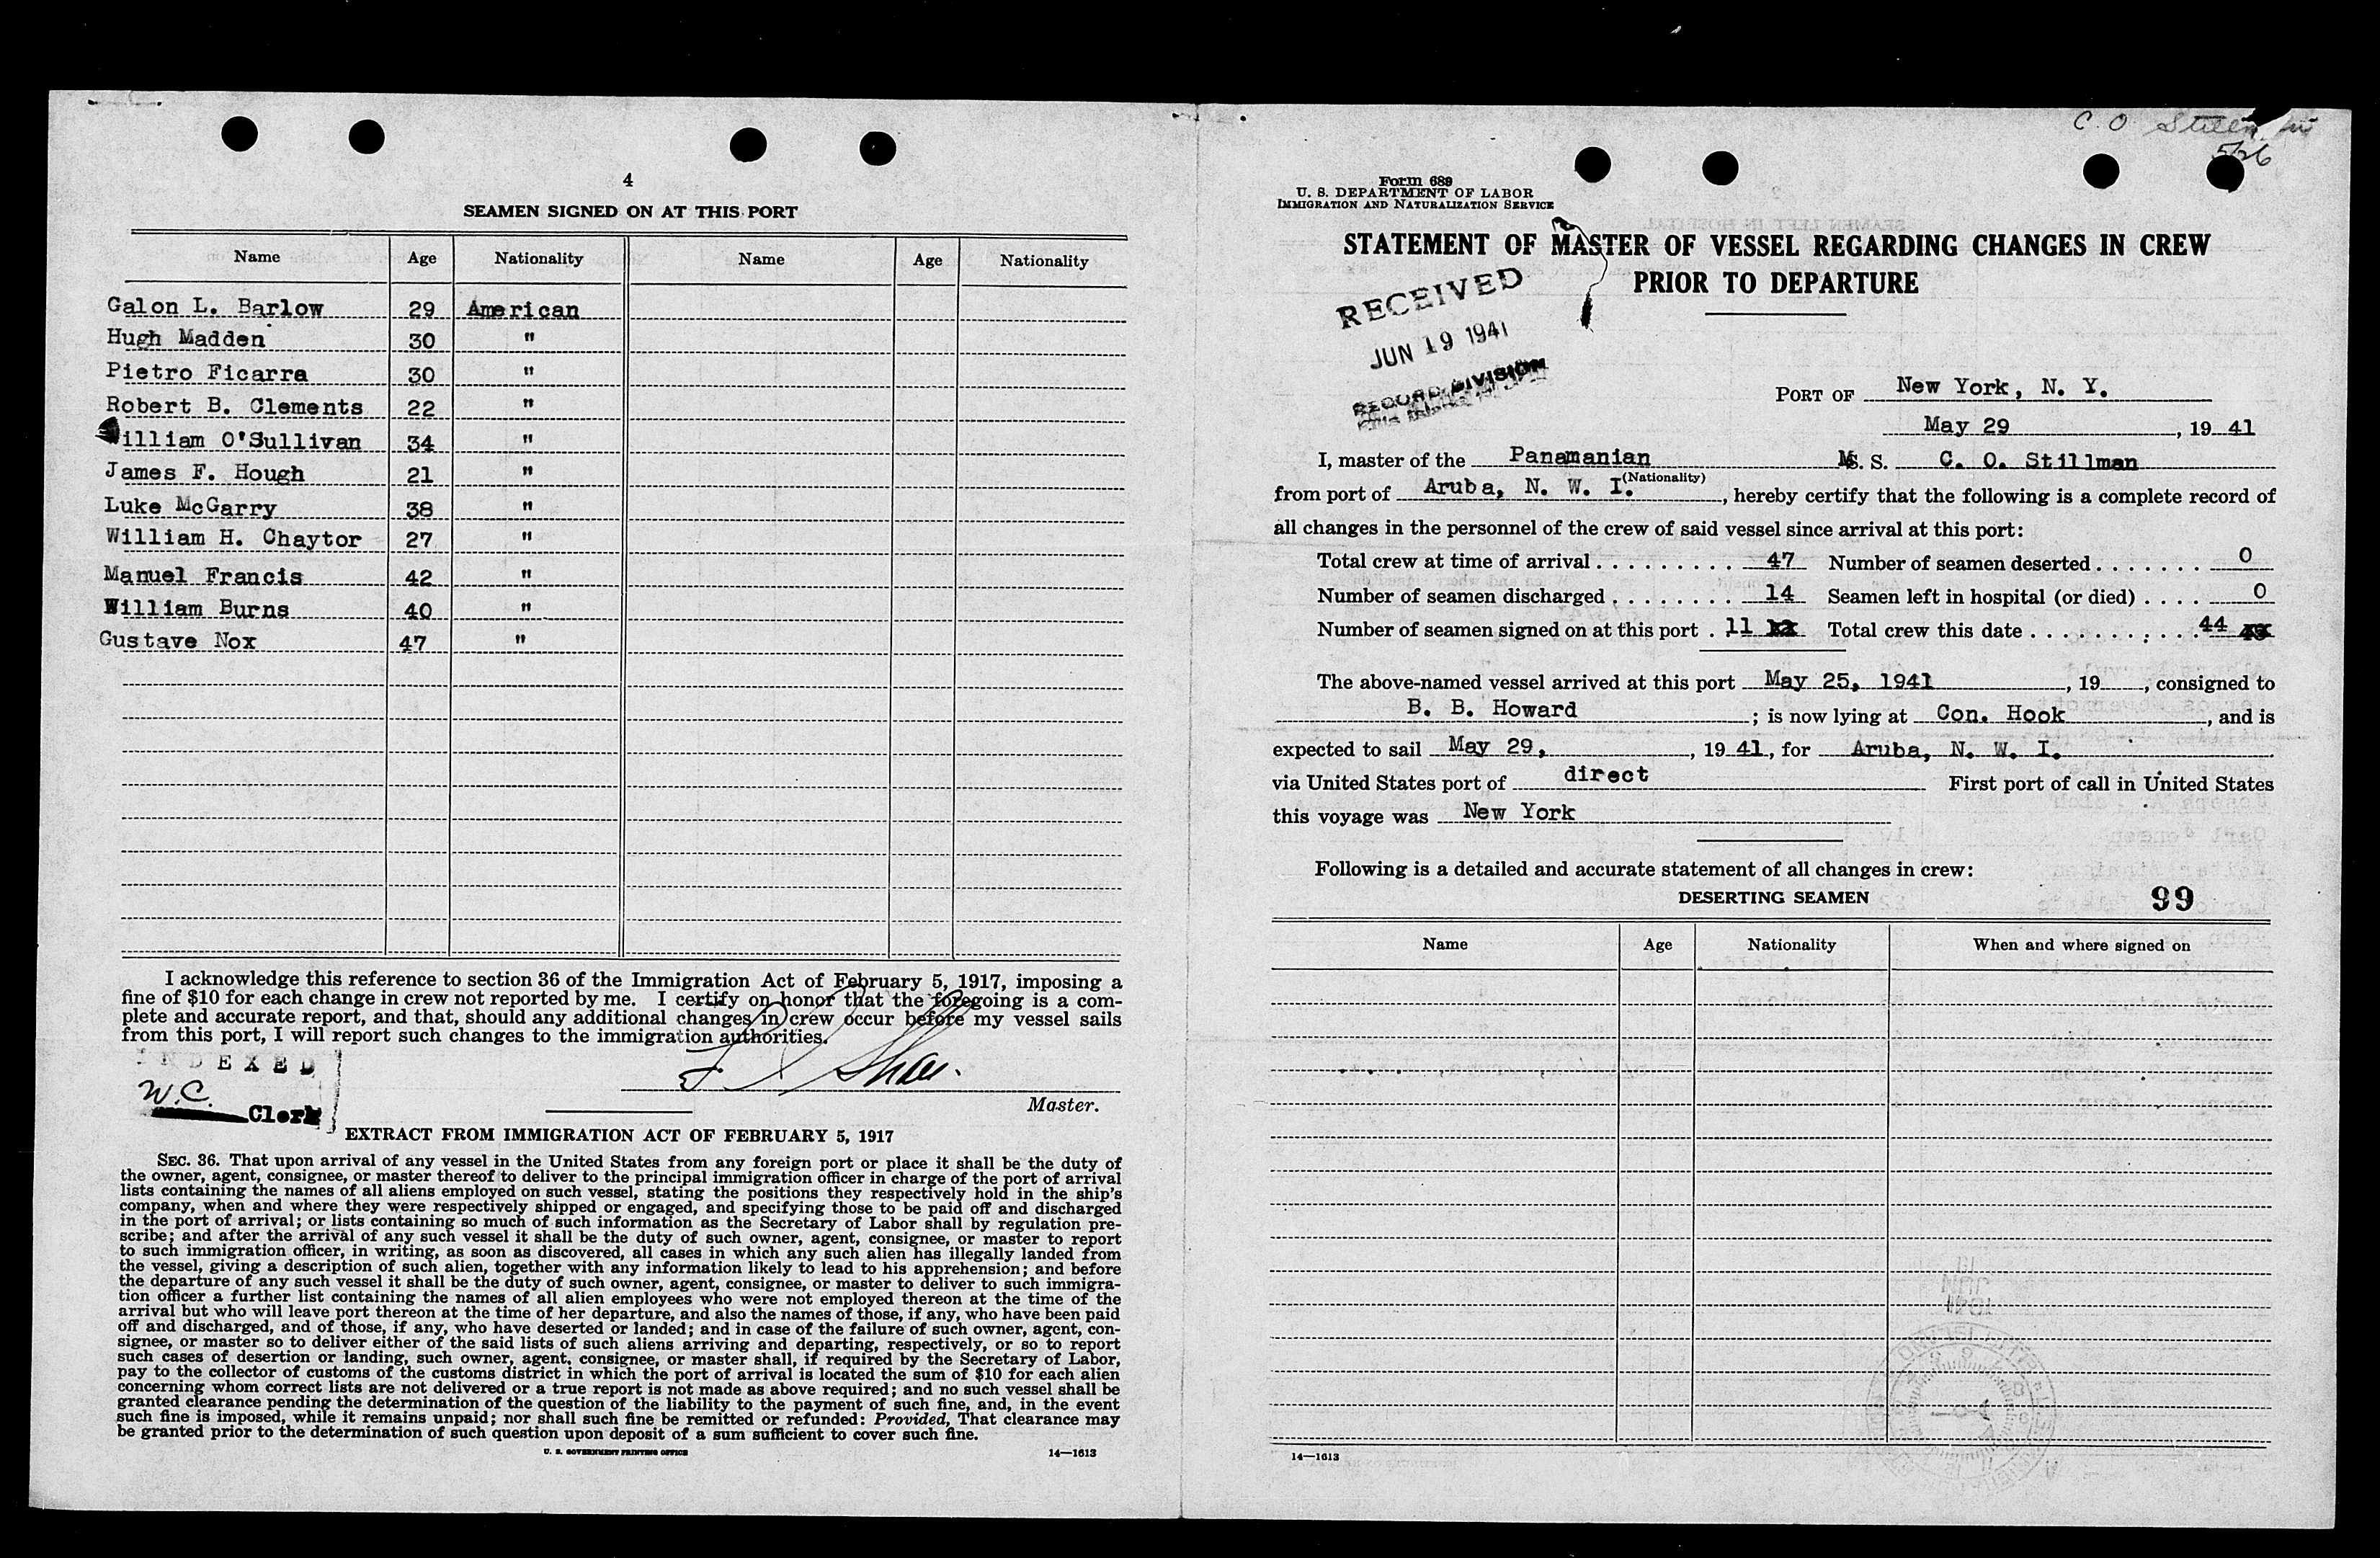 4
SEAMEN SIGNED ON AT THIS PORT
Name Age Nationality Name Age Nationality
Galon L. Barlow 29 American
Hugh Madden 30 "
Pietro Ficarra 30 "
Robert B. Clements 22 "
William O'Sullivan 34 "
James F. Hough 21 "
Luke McGarry 38 "
William H. Chaytor 27 "
Manuel Francis 42 "
William Burns 40 "
Gustave Nox 47 "
I acknowledge this reference to section 36 of the Immigration Act of February 5, 1917, imposing a
fine of $10 for each change in crew not reported by me. I certify on honor that the foregoing is a com-
plete and accurate report, and that, should any additional changes in crew occur before my vessel sails
from this port, I will report such changes to the immigration authorities.
INDEXED
W.C.
Clerk
Master.
EXTRACT FROM IMMIGRATION ACT OF FEBRUARY 5, 1917
SEC. 36. That upon arrival of any vessel in the United States from any foreign port or place it shall be the duty of
the owner, agent, consignee, or master thereof to deliver to the principal immigration officer in charge of the port of arrival
lists containing the names of all aliens employed on such vessel, stating the positions they respectively hold in the ship's
company, when and where they were respectively shipped or engaged, and specifying those to be paid off and discharged
in the port of arrival; or lists containing so much of such information as the Secretary of Labor shall by regulation pre-
scribe; and after the arrival of any such vessel it shall be the duty of such owner, agent, consignee, or master to report
to such immigration officer, in writing, as soon as discovered, all cases in which any such alien has illegally landed from
the vessel, giving a description of such alien, together with any information likely to lead to his apprehension; and before
the departure of any such vessel it shall be the duty of such owner, agent, consignee, or master to deliver to such immigra-
tion officer a further list containing the names of all alien employees who were not employed thereon at the time of the
arrival but who will leave port thereon at the time of her departure, and also the names of those, if any, who have been paid
off and discharged, and of those, if any, who have deserted or landed; and in case of the failure of such owner, agent, con-
signee, or master so to deliver either of the said lists of such aliens arriving and departing, respectively, or so to report
such cases of desertion or landing, such owner, agent, consignee, or master shall, if required by the Secretary of Labor,
pay to the collector of customs of the customs district in which the port of arrival is located the sum of $10 for each alien
concerning whom correct lists are not delivered or a true report is not made as above required; and no such vessel shall be
granted clearance pending the determination of the question of the liability to the payment of such fine, and, in the event
such fine is imposed, while it remains unpaid; nor shall such fine be remitted or refunded: Provided, That clearance may
be granted prior to the determination of such question upon deposit of a sum sufficient to cover such fine.
U. S. GOVERNMENT PRINTING OFFICE 14—1613
C. O.
Form 689
U. S. DEPARTMENT OF LABOR
IMMIGRATION AND NATURALIZATION SERVICE
STATEMENT OF MASTER OF VESSEL REGARDING CHANGES IN CREW
PRIOR TO DEPARTURE
RECEIVED
JUN 19 1941
RECORD DIVISION
PORT OF New York, N. Y.
May 29, 19 41
I, master of the Panamanian M. S. C. O. Stillman
(Nationality)
from port of Aruba, N. W. I., hereby certify that the following is a complete record of
all changes in the personnel of the crew of said vessel since arrival at this port:
Total crew at time of arrival . . . . . . . . . 47 Number of seamen deserted . . . . . . . 0
Number of seamen discharged . . . . . . . . 14 Seamen left in hospital (or died) . . . . 0
Number of seamen signed on at this port . 11 Total crew this date . . . . . . . . . . . 44
The above-named vessel arrived at this port May 25, 1941, 19, consigned to
B. B. Howard; is now lying at Con. Hook, and is
expected to sail May 29, 19 41, for Aruba, N. W. I.
via United States port of direct First port of call in United States
this voyage was New York
Following is a detailed and accurate statement of all changes in crew:
DESERTING SEAMEN 99
Name Age Nationality When and where signed on
14—1613